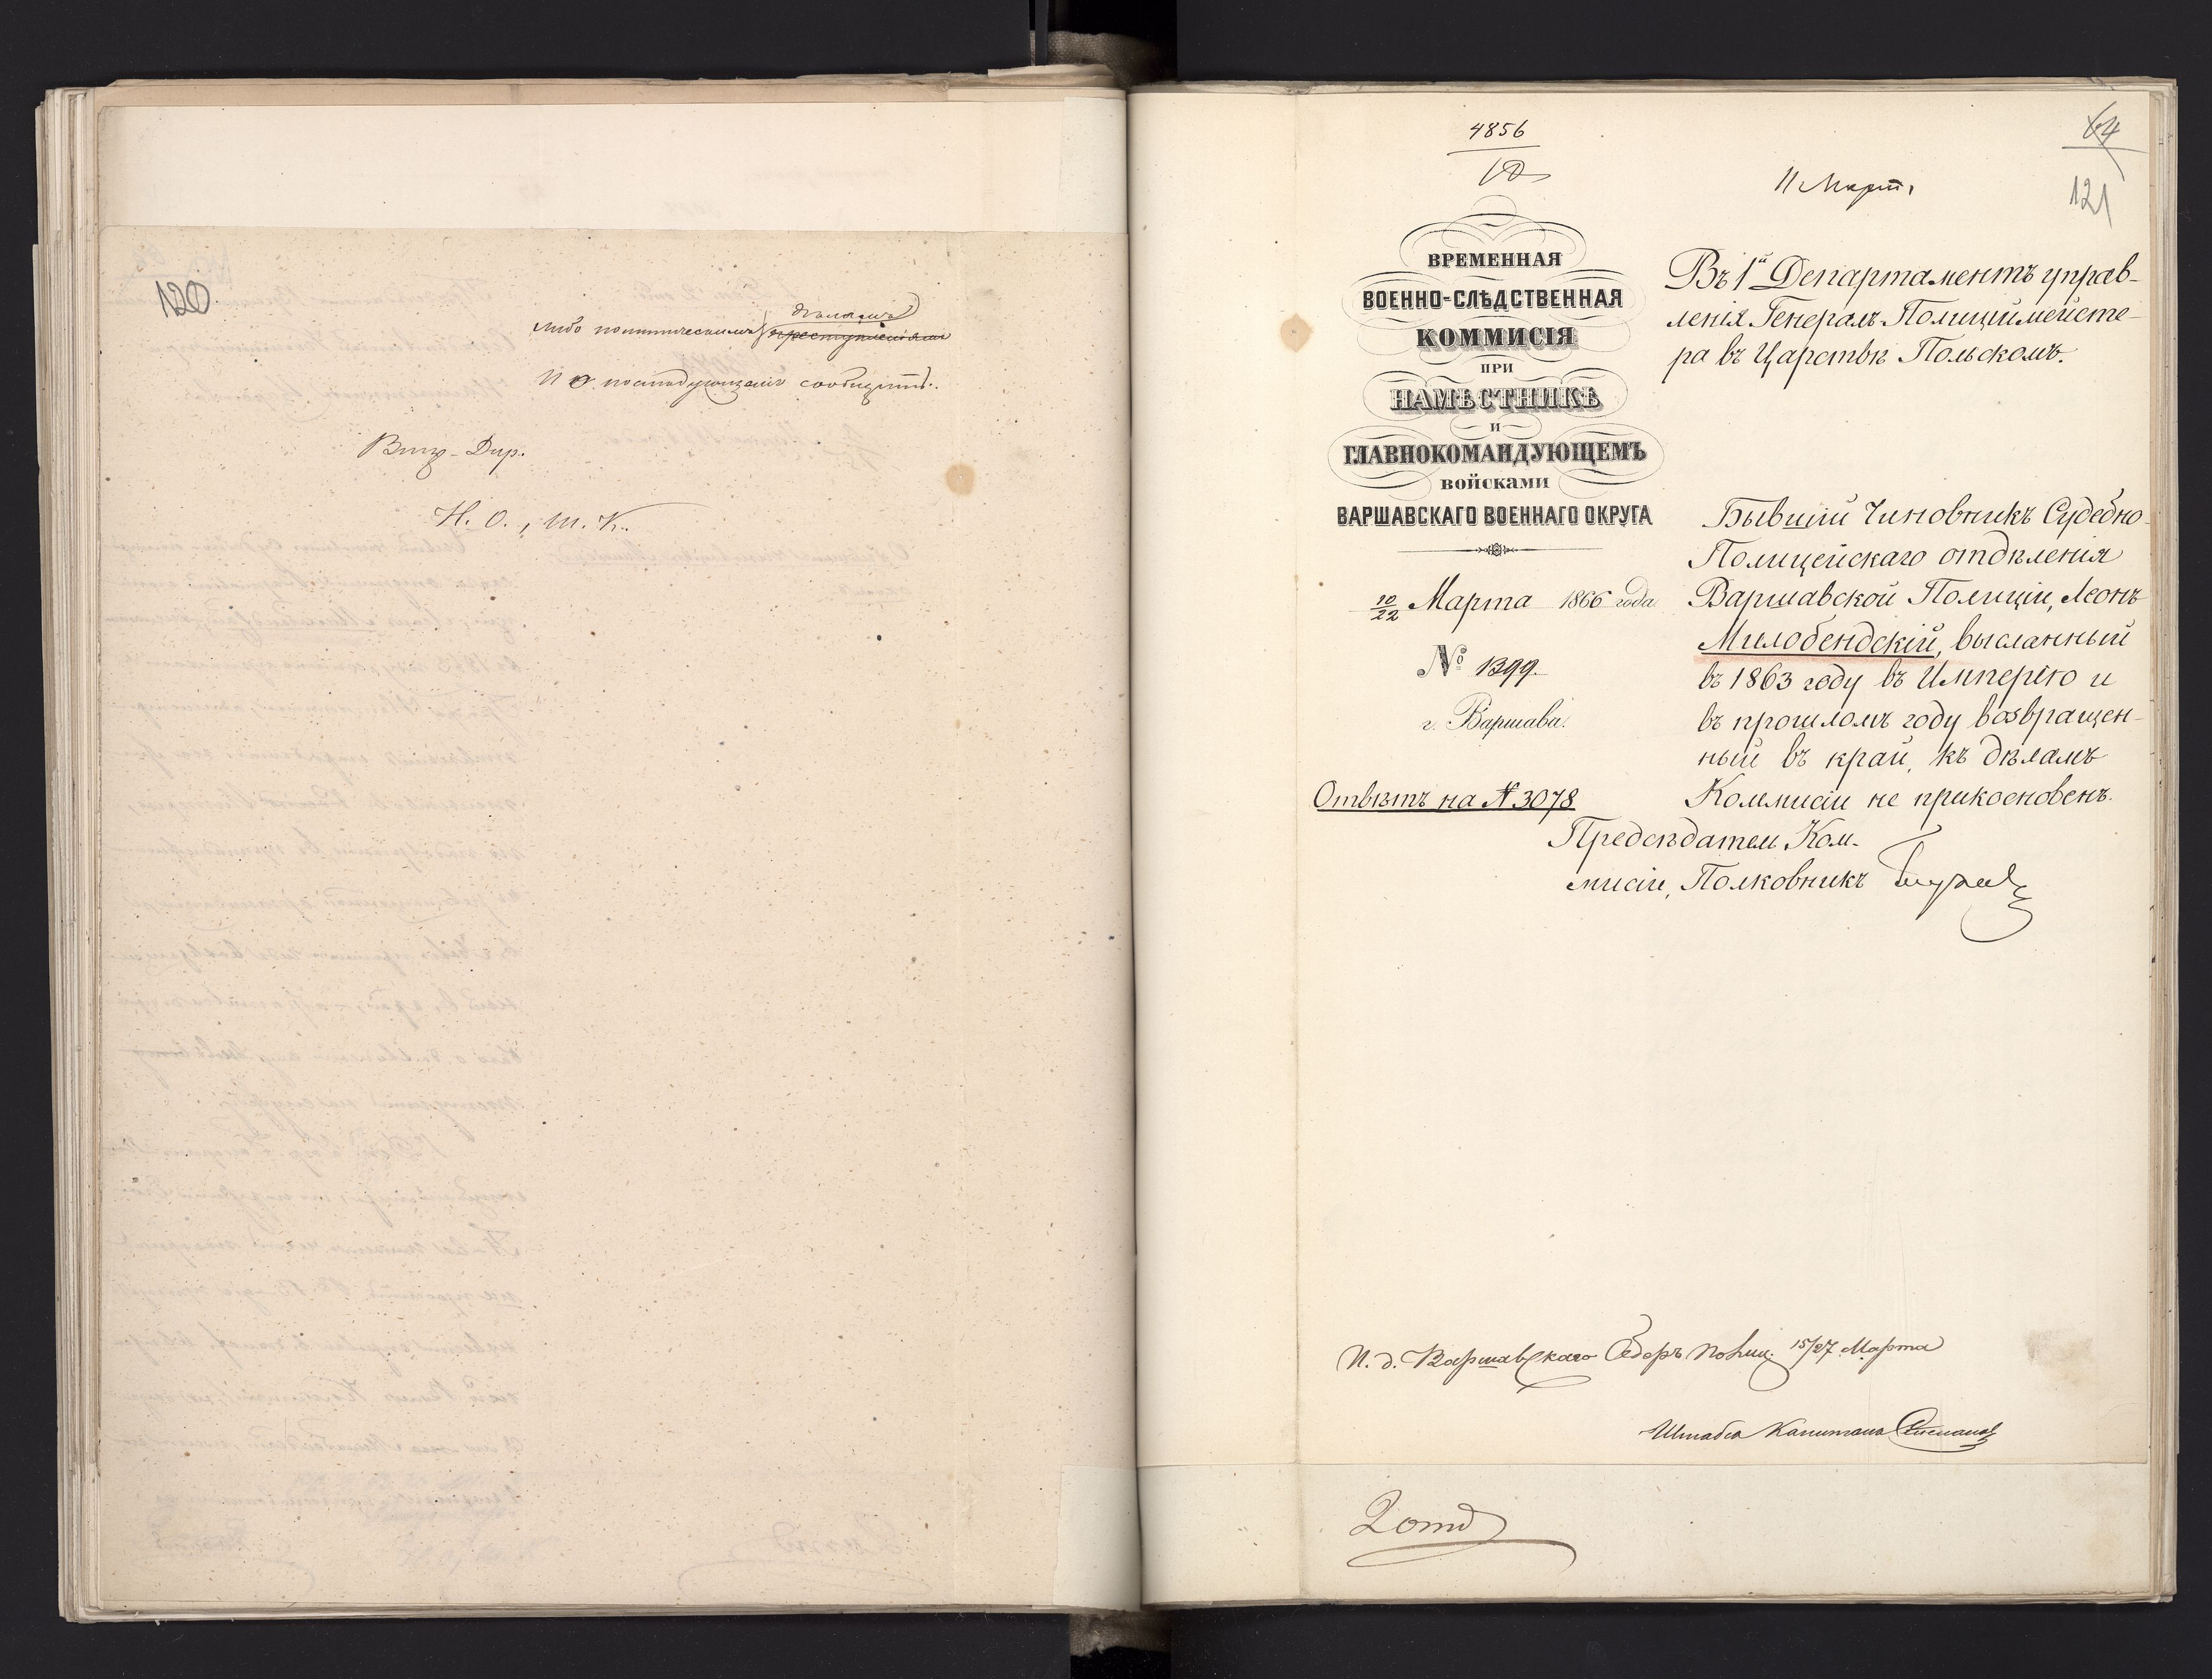 120
дѣламъ
либо политическимъ преступленіямъ
И о послѣдующемъ сообщить.
Виц-Дир.
Н. О., Ш. К.
4856
64
11 Март,
121
ВРЕМЕННАЯ
ВОЕННО-СЛѢДСТВЕННАЯ
КОММИСІЯ
ПРИ
НАМѢСТНИКѢ
И
ГЛАВНОКОМАНДУЮЩЕМЪ
ВОЙСКАМИ
ВАРШАВСКАГО ВОЕННАГО ОКРУГА
10/22 Марта 1866 года
№ 1399.
г. Варшава.
Отвѣтъ на № 3078
Въ 1й Департаментъ управ-
ленія Генералъ-Полицiймейсте-
ра въ Царствѣ Польскомъ.
Бывшій Чиновникъ Судебно-
Полицейскаго отдѣленія
Варшавской Полиціи, Леонъ
Милобендскій, высланный
въ 1863 году въ Имперію и
въ прошломъ году возвращен-
ный въ край, къ дѣламъ
Коммисіи не прикосновенъ.
Предсѣдатель Ком-
мисіи, Полковникъ
И. д. Варшавскаго 15/27 Марта
Штабсъ Капитанъ
2 отд